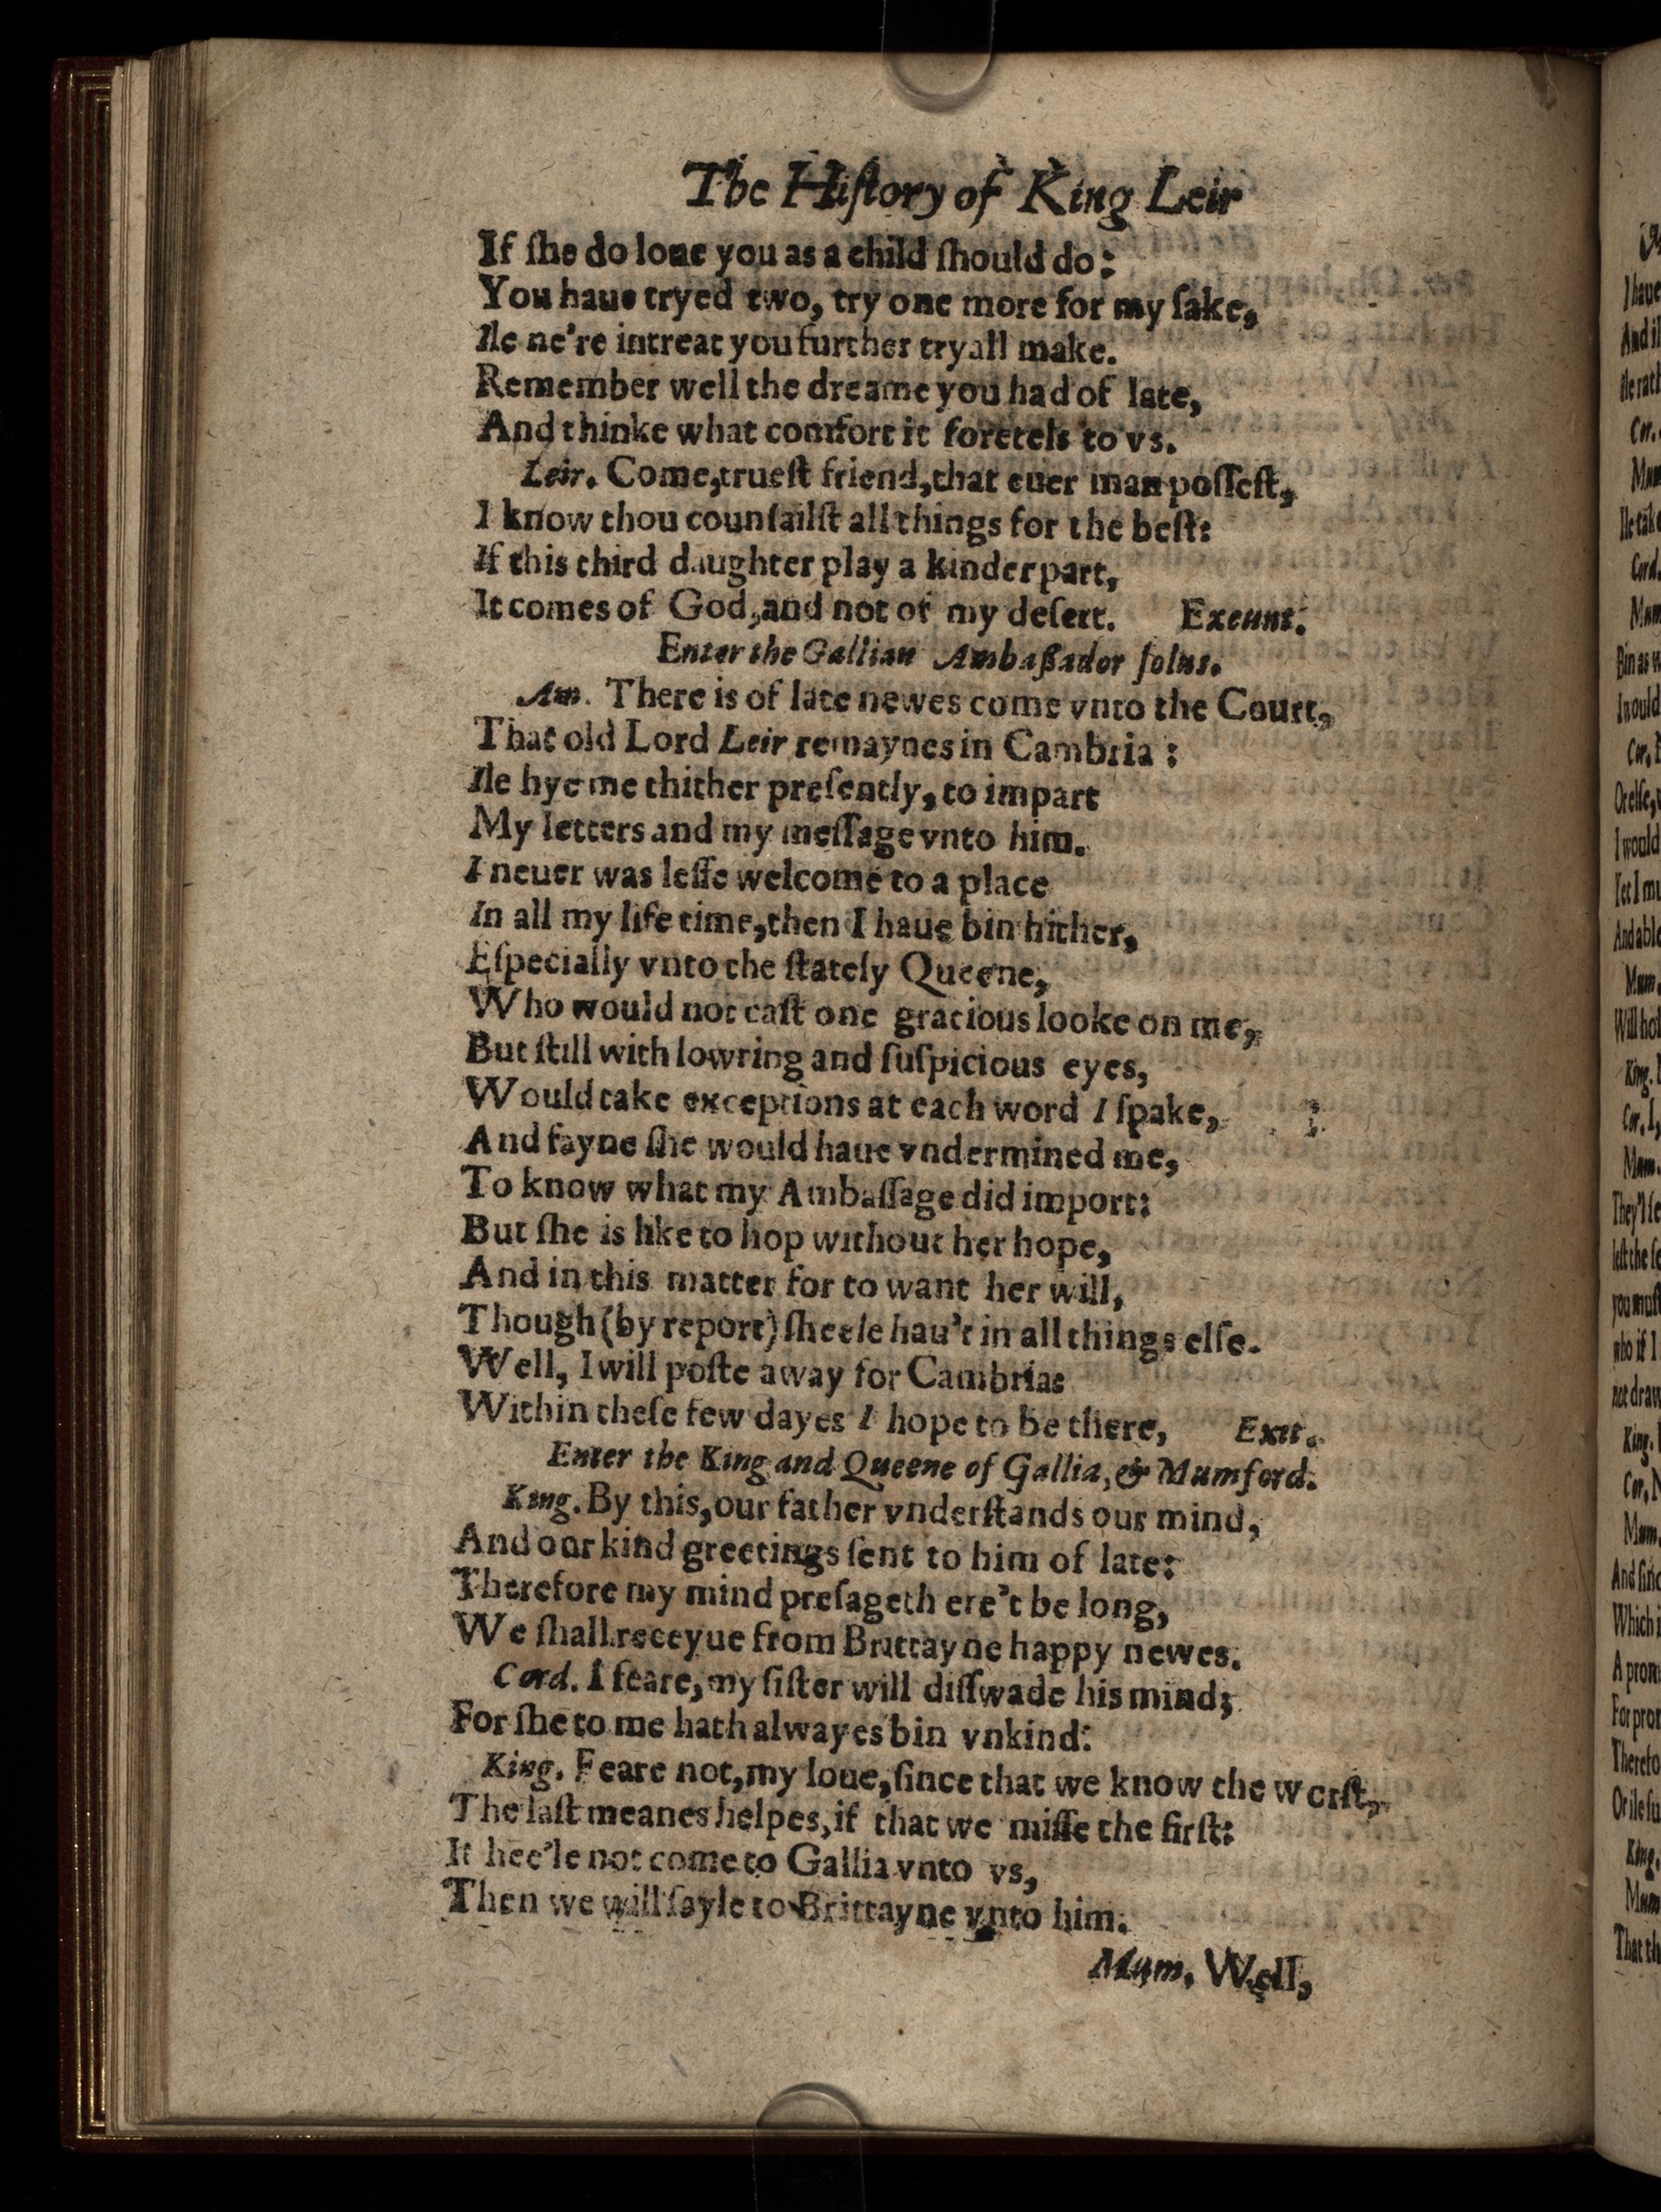 The Hiſtory of King Leir
If ſhe do loue you as a child ſhould do:
You haue tryed two, try one more for my ſake,
Ile ne're intreat you further tryall make.
Remember well the dreame you had of late,
And thinke what comfort it foretels to vs.
Leir. Come, trueſt friend, that euer man poſſeſt,
I know thou counſailſt all things for the beſt:
If this third daughter play a kinder part,
It comes of God, and not of my deſert. Exeunt.
Enter the Gallian Ambaßador ſolus.
Am. There is of late newes come vnto the Court,
That old Lord Leir remaynes in Cambria:
Ile hye me thither preſently, to impart
My letters and my meſſage vnto him.
I neuer was leſſe welcome to a place
In all my life time, then I haue bin hither,
Eſpecially vnto the ſtately Queene,
Who would not caſt one gracious looke on me,
But ſtill with lowring and ſuſpicious eyes,
Would take exceptions at each word I ſpake,
And fayne ſhe would haue vndermined me,
To know what my Ambaſſage did import:
But ſhe is like to hop without her hope,
And in this matter for to want her will,
Though (by report) ſheele hau't in all things elſe.
Well, I will poſte away for Cambria:
Within theſe few dayes I hope to be there, Exit.
Enter the King and Queene of Gallia, & Mumford.
King. By this, our father vnderſtands our mind,
And our kind greetings ſent to him of late:
Therefore my mind preſageth ere't be long,
We ſhall receyue from Brittayne happy newes.
Cord. I feare, my ſiſter will diſſwade his mind;
For ſhe to me hath alwayes bin vnkind.
King. Feare not, my loue, ſince that we know the worſt,
The laſt meanes helpes, if that we miſſe the firſt:
If hee'le not come to Gallia vnto vs,
Then we will ſayle to Brittayne vnto him.
Mum, Well,